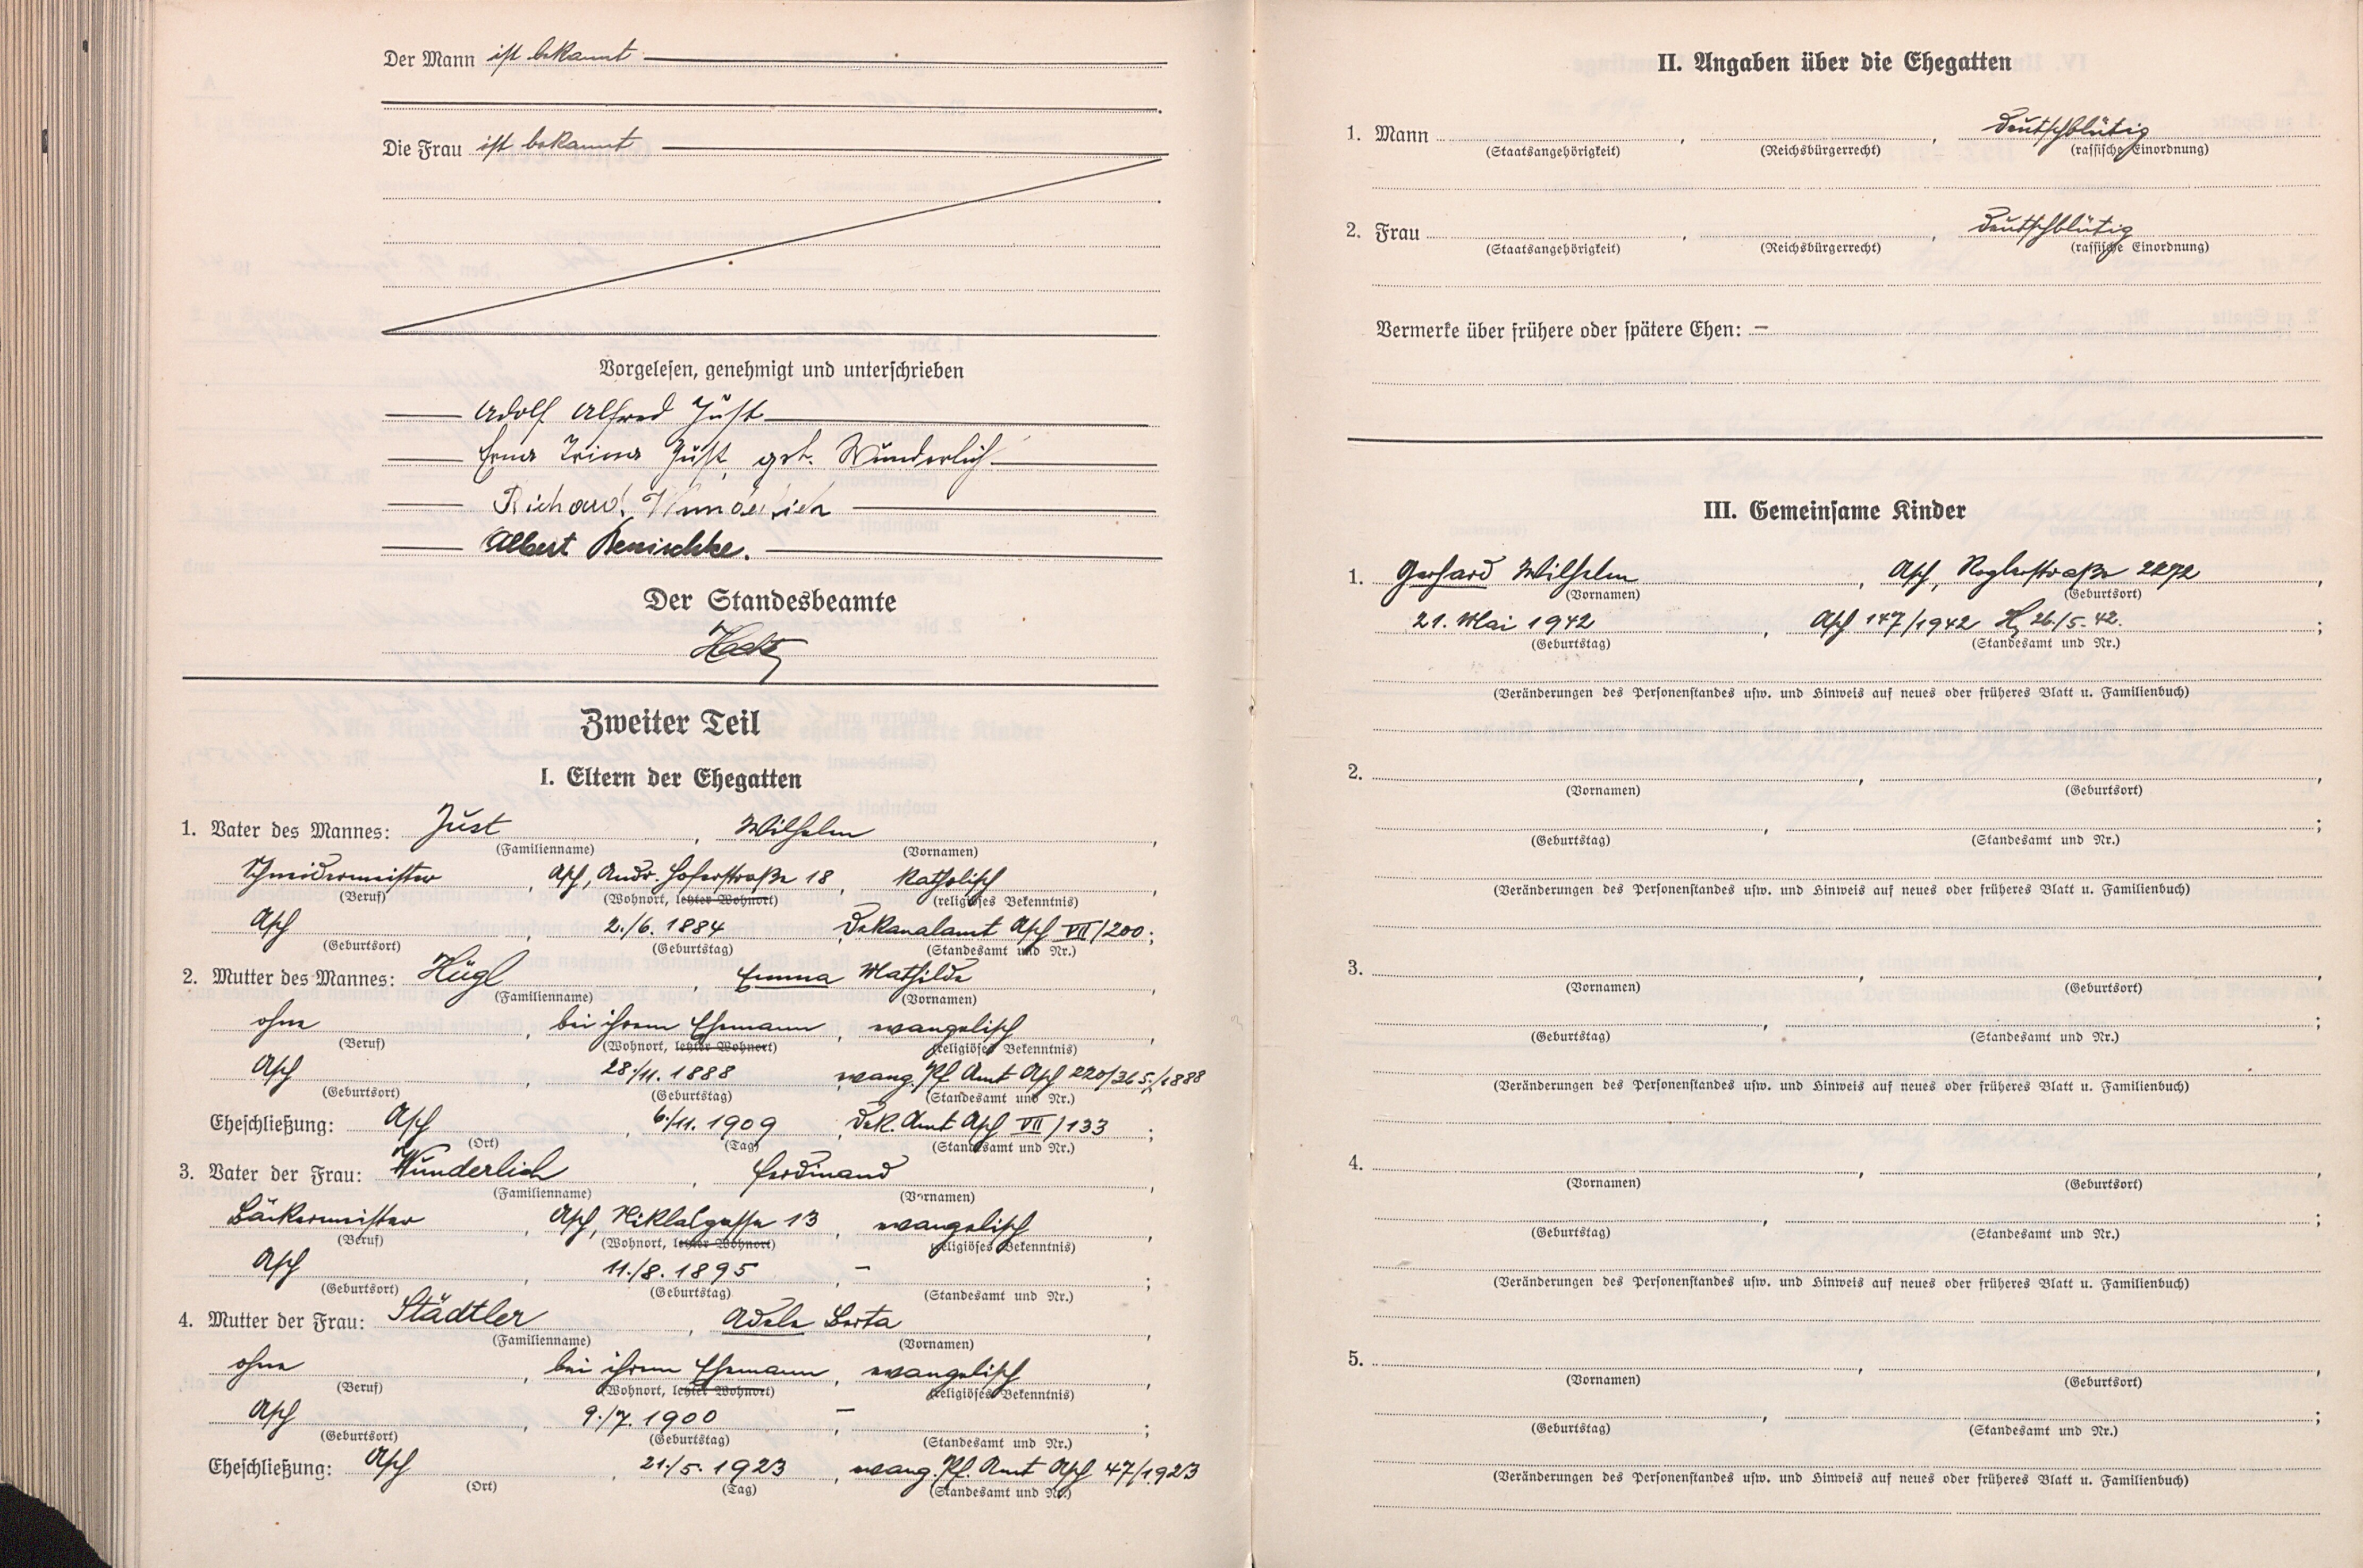 Der Mann ist bekannt
Die Frau ist bekannt
Vorgelesen, genehmigt und unterschrieben
Adolf Alfred Just
Erna Irina Just, geb. Wunderlich
Richard Wunderlich
Albert
Der Standesbeamte
Zweiter Teil
I. Eltern der Ehegatten
1. Vater des Mannes: Just, Wilhelm,
(Familienname) (Vornamen)
Schneidermeister, Asch, Andr. Hoferstraße 18, katholisch,
(Beruf) (Wohnort, letzter Wohnort) (religiöses Bekenntnis)
Asch, 2./6. 1884, Dekanalamt Asch VII/200;
(Geburtsort) (Geburtstag) (Standesamt und Nr.)
2. Mutter des Mannes: Hügl, Emma Mathilde,
(Familienname) (Vornamen)
ohne, bei ihrem Ehemann, evangelisch,
(Beruf) (Wohnort, letzter Wohnort) (religiöses Bekenntnis)
Asch, 28./11. 1888, evang. Pf. Amt Asch 220/365/1888
(Geburtsort) (Geburtstag) (Standesamt und Nr.)
Eheschließung: Asch, 6./11. 1909, Dek. Amt Asch VII/133;
(Ort) (Tag) (Standesamt und Nr.)
3. Vater der Frau: Wunderlich, Ferdinand,
(Familienname) (Vornamen)
Bäckermeister, Asch, Niklasgasse 13, evangelisch,
(Beruf) (Wohnort, letzter Wohnort) (religiöses Bekenntnis)
Asch, 11./8. 1895, –;
(Geburtsort) (Geburtstag) (Standesamt und Nr.)
4. Mutter der Frau: Städtler, Adele Berta,
(Familienname) (Vornamen)
ohne, bei ihrem Ehemann, evangelisch,
(Beruf) (Wohnort, letzter Wohnort) (religiöses Bekenntnis)
Asch, 9./7. 1900, –;
(Geburtsort) (Geburtstag) (Standesamt und Nr.)
Eheschließung: Asch, 21./5. 1923, evang. Pf. Amt Asch 47/1923
(Ort) (Tag) (Standesamt und Nr.)
II. Angaben über die Ehegatten
1. Mann , , deutschblütig
(Staatsangehörigkeit) (Reichsbürgerrecht) (rassische Einordnung)
2. Frau , , deutschblütig
(Staatsangehörigkeit) (Reichsbürgerrecht) (rassische Einordnung)
Vermerke über frühere oder spätere Ehen: –
III. Gemeinsame Kinder
1. Gerhard Wilhelm, Asch, Roglerstraße 2272,
(Vornamen) (Geburtsort)
21. Mai 1942, Asch 147/1942 26./5. 42.;
(Geburtstag) (Standesamt und Nr.)
(Veränderungen des Personenstandes usw. und Hinweis auf neues oder früheres Blatt u. Familienbuch)
2. , ,
(Vornamen) (Geburtsort)
, ;
(Geburtstag) (Standesamt und Nr.)
(Veränderungen des Personenstandes usw. und Hinweis auf neues oder früheres Blatt u. Familienbuch)
3. , ,
(Vornamen) (Geburtsort)
, ;
(Geburtstag) (Standesamt und Nr.)
(Veränderungen des Personenstandes usw. und Hinweis auf neues oder früheres Blatt u. Familienbuch)
4. , ,
(Vornamen) (Geburtsort)
, ;
(Geburtstag) (Standesamt und Nr.)
(Veränderungen des Personenstandes usw. und Hinweis auf neues oder früheres Blatt u. Familienbuch)
5. , ,
(Vornamen) (Geburtsort)
, ;
(Geburtstag) (Standesamt und Nr.)
(Veränderungen des Personenstandes usw. und Hinweis auf neues oder früheres Blatt u. Familienbuch)